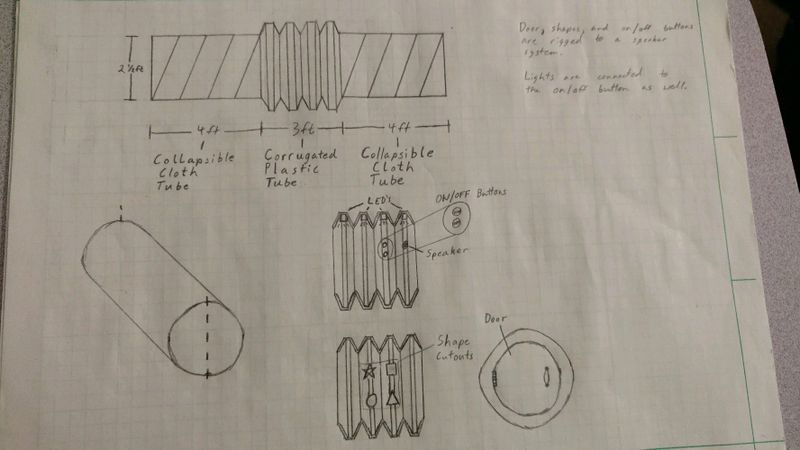 Door, shapes, and on/off buttons
are rigged to a speaker
system.
Lights are connected to
the on/off button as well.
2 1/2ft
4ft
3ft
4ft
Collapsible
Cloth
Tube
Corrugated
Plastic
Tube
Collapsible
Cloth
Tube
LED's
ON/OFF Buttons
Speaker
Shape
Cutouts
Door